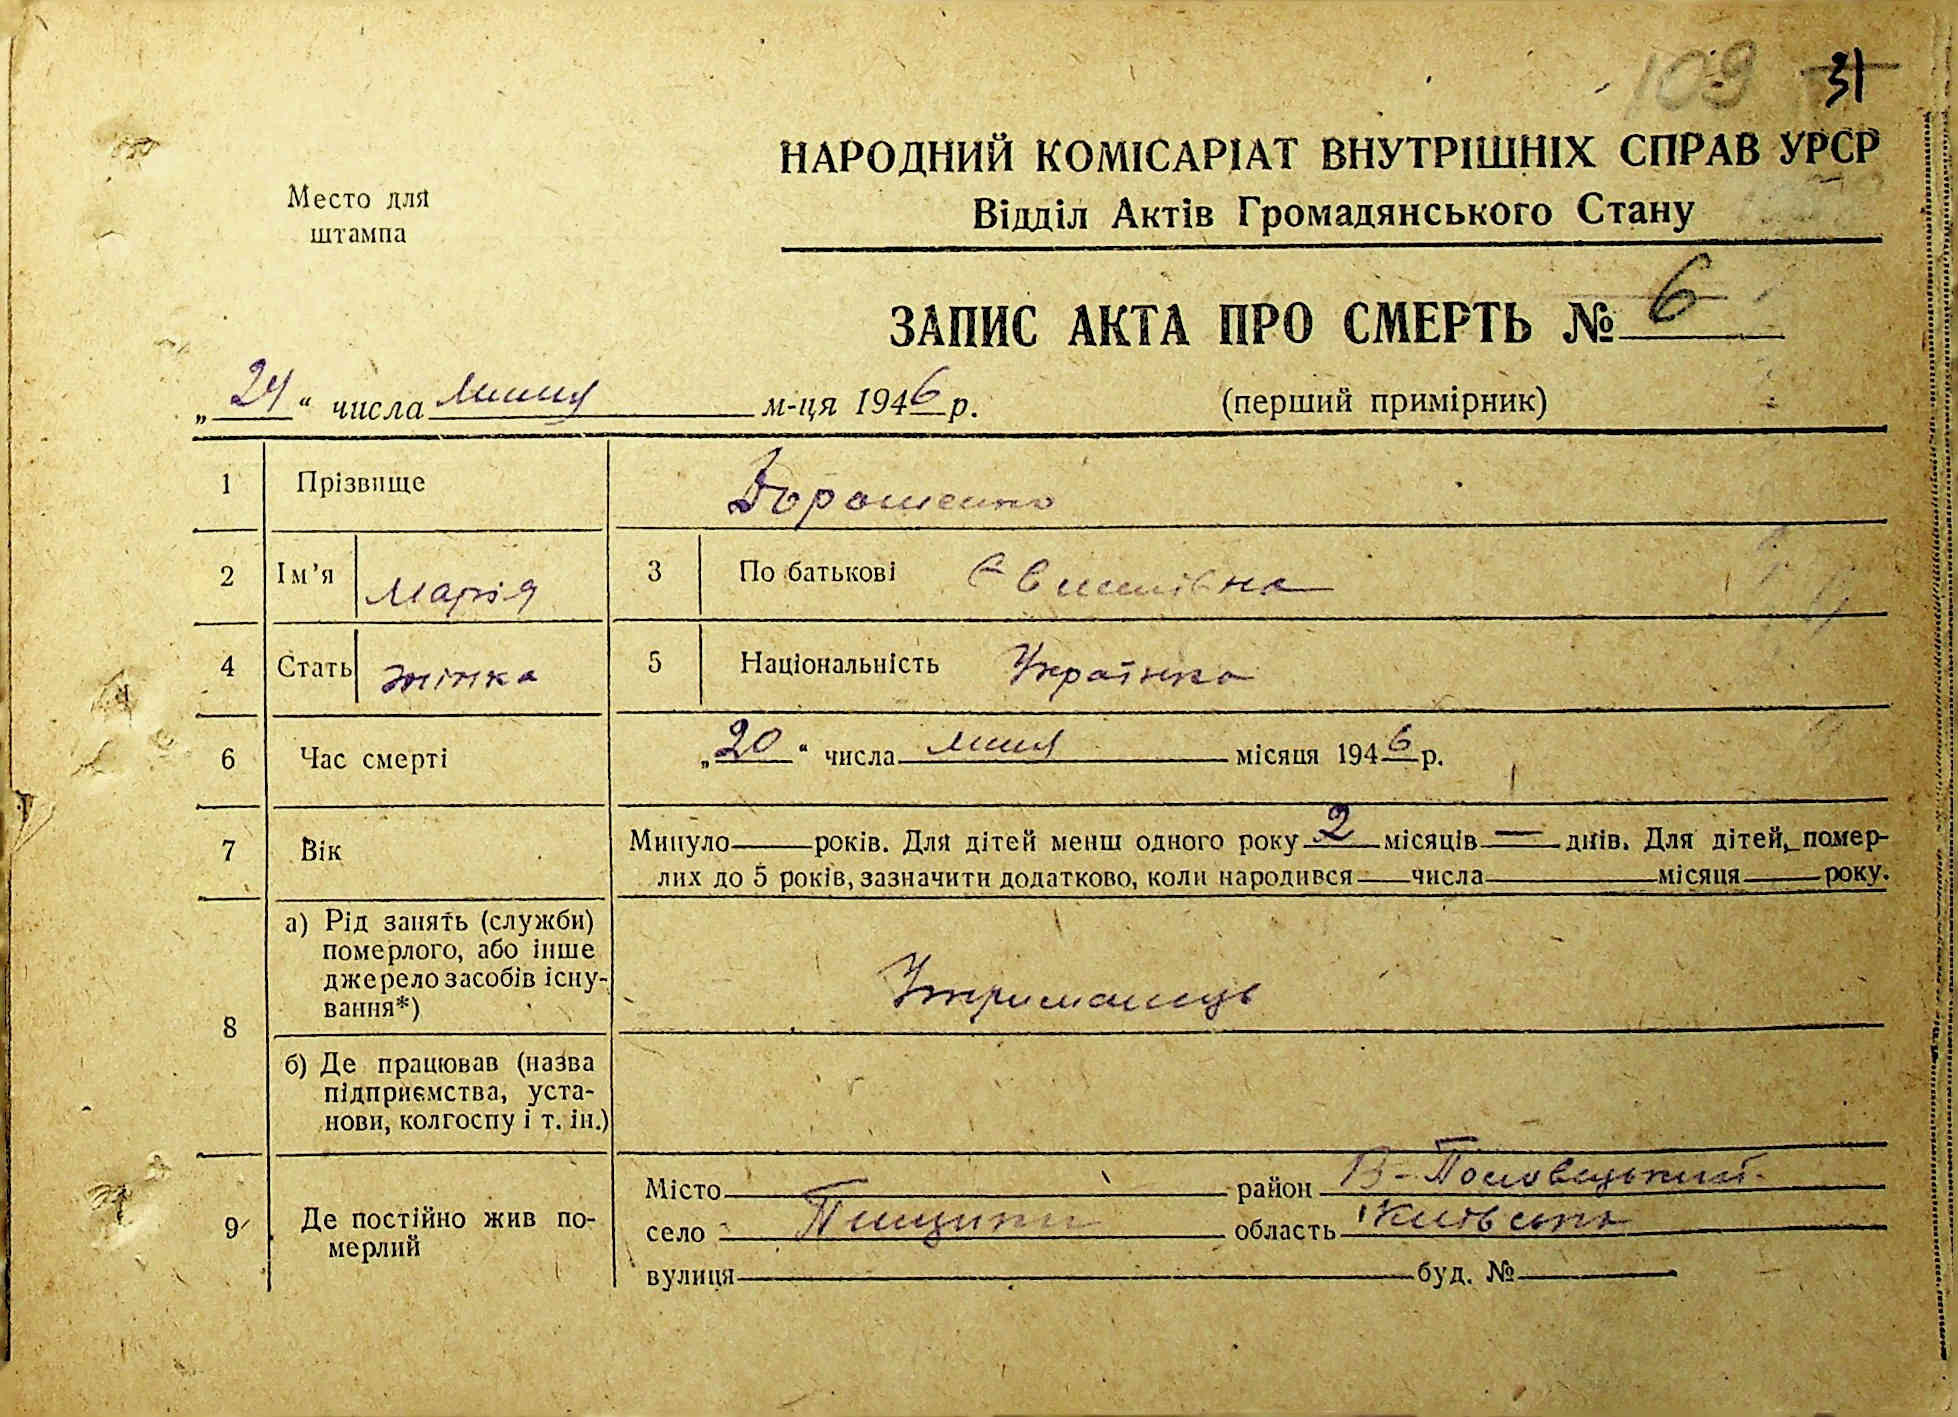 109 31
НАРОДНИЙ КОМІСАРІАТ ВНУТРІШНІХ СПРАВ УРСР
Место для штампа
Відділ Актів Громадянського Стану
ЗАПИС АКТА ПРО СМЕРТЬ № 6
„24“ числа липня м-ця 1946 р. (перший примірник)
1 Прізвище Дорошенко
2 Ім’я Марія 3 По батькові
4 Стать жінка 5 Національність Українка
6 Час смерті „20“ числа липня місяця 1946 р.
7 Вік Минуло — років. Для дітей менш одного року 2 місяців — днів. Для дітей, помер-
лих до 5 років, зазначити додатково, коли народився — числа — місяця — року.
8 а) Рід занять (служби)
померлого, або інше
джерело засобів існу-
вання*) Утриманець
б) Де працював (назва
підприємства, уста-
нови, колгоспу і т. ін.)
9 Де постійно жив по-
мерлий
Місто район В-Половецький
село Пищики область Київська
вулиця буд. №